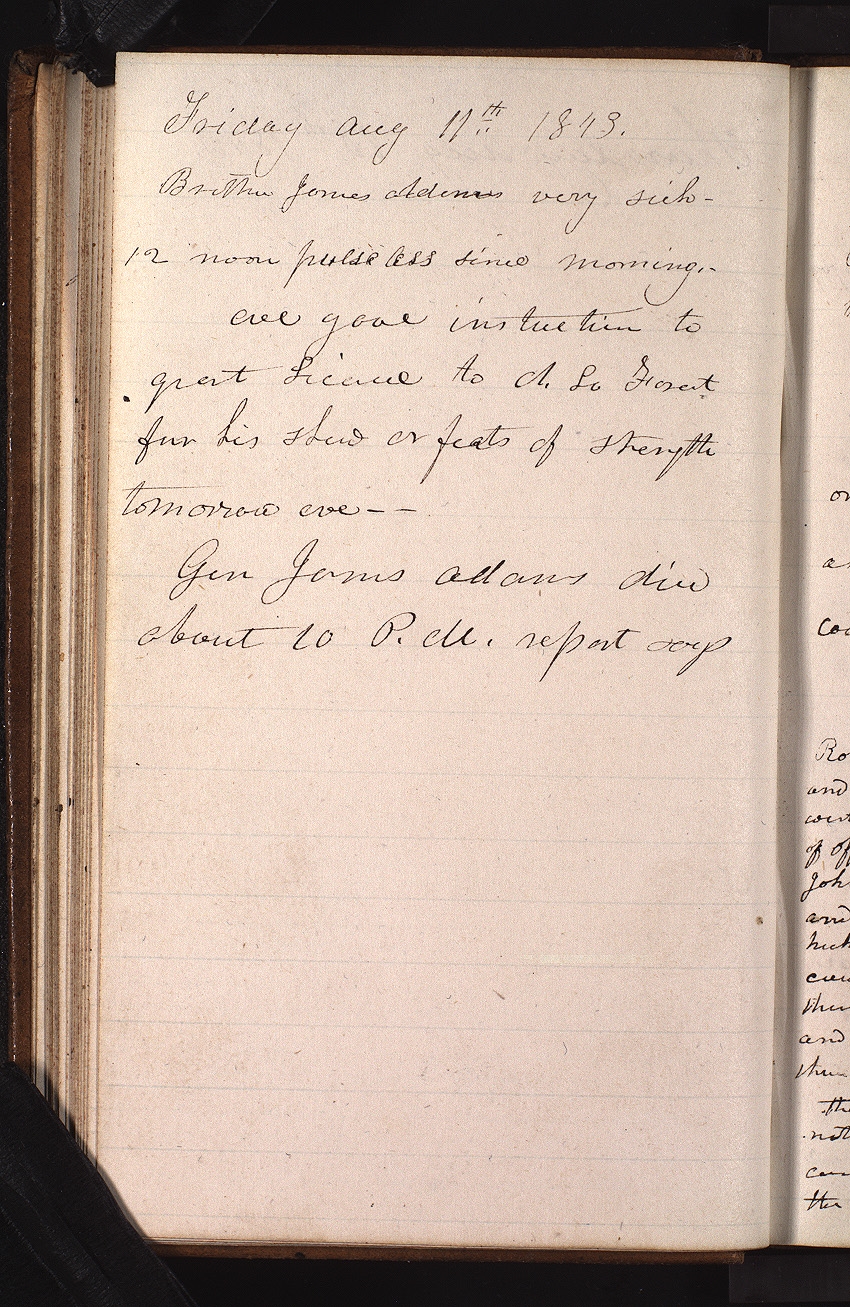 Friday Aug 11th 1843.
Brother James Adams very sick-
12 noon pulseless since morning.-
eve gave instruction to
grant Licence to M. La Forest
for his shew or feats of strength
tomorrow eve--
Gen James Adams died
about 10 P.M. report says
or
as
Ro
and
of of
Joh
and
and
the
not
the